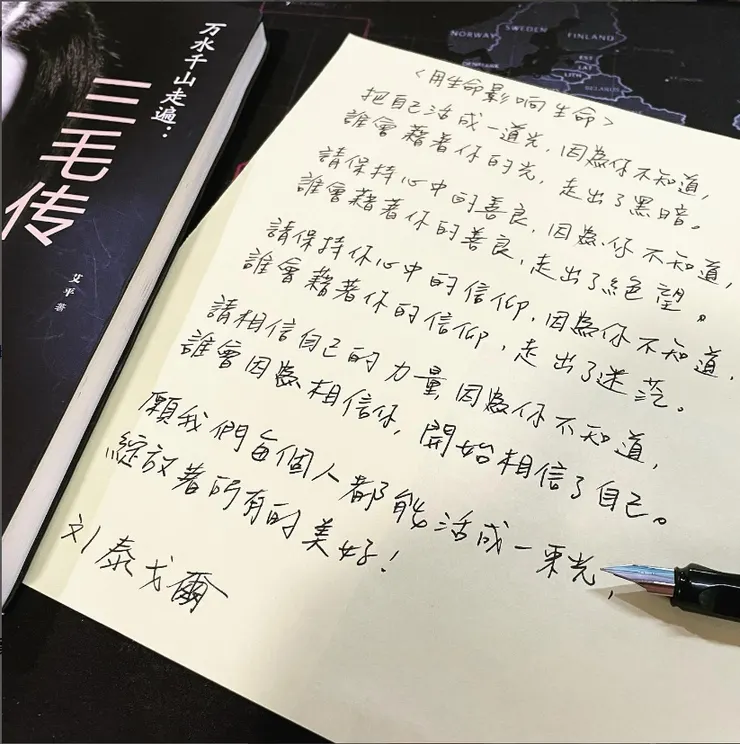 万水千山走遍：
三毛传
艾平 著
NORWAY
SWEDEN
FINLAND
EST
LAT
LITH
BELARUS
<用生命影响生命>
把自己活成一道光，因為你不知道，
誰會藉著你的光，走出了黑暗。
請保持心中的善良，因為你不知道，
誰會藉著你的善良，走出了絕望。
請保持你心中的信仰，因為你不知道，
誰會藉著你的信仰，走出了迷茫。
請相信自己的力量，因為你不知道，
誰會因為相信你，開始相信了自己。
願我們每個人都能活成一束光，
綻放著所有的美好！
刘泰戈爾